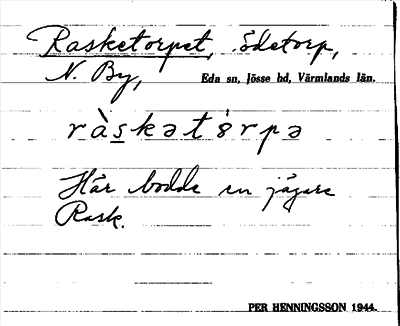 Rasketorpet, Ödetorp,
N. By, Eda sn, Jösse hd, Värmlands län.
ràskətórpə
Här bodde en jägare
Rask.
PER HENNINGSSON 1944.